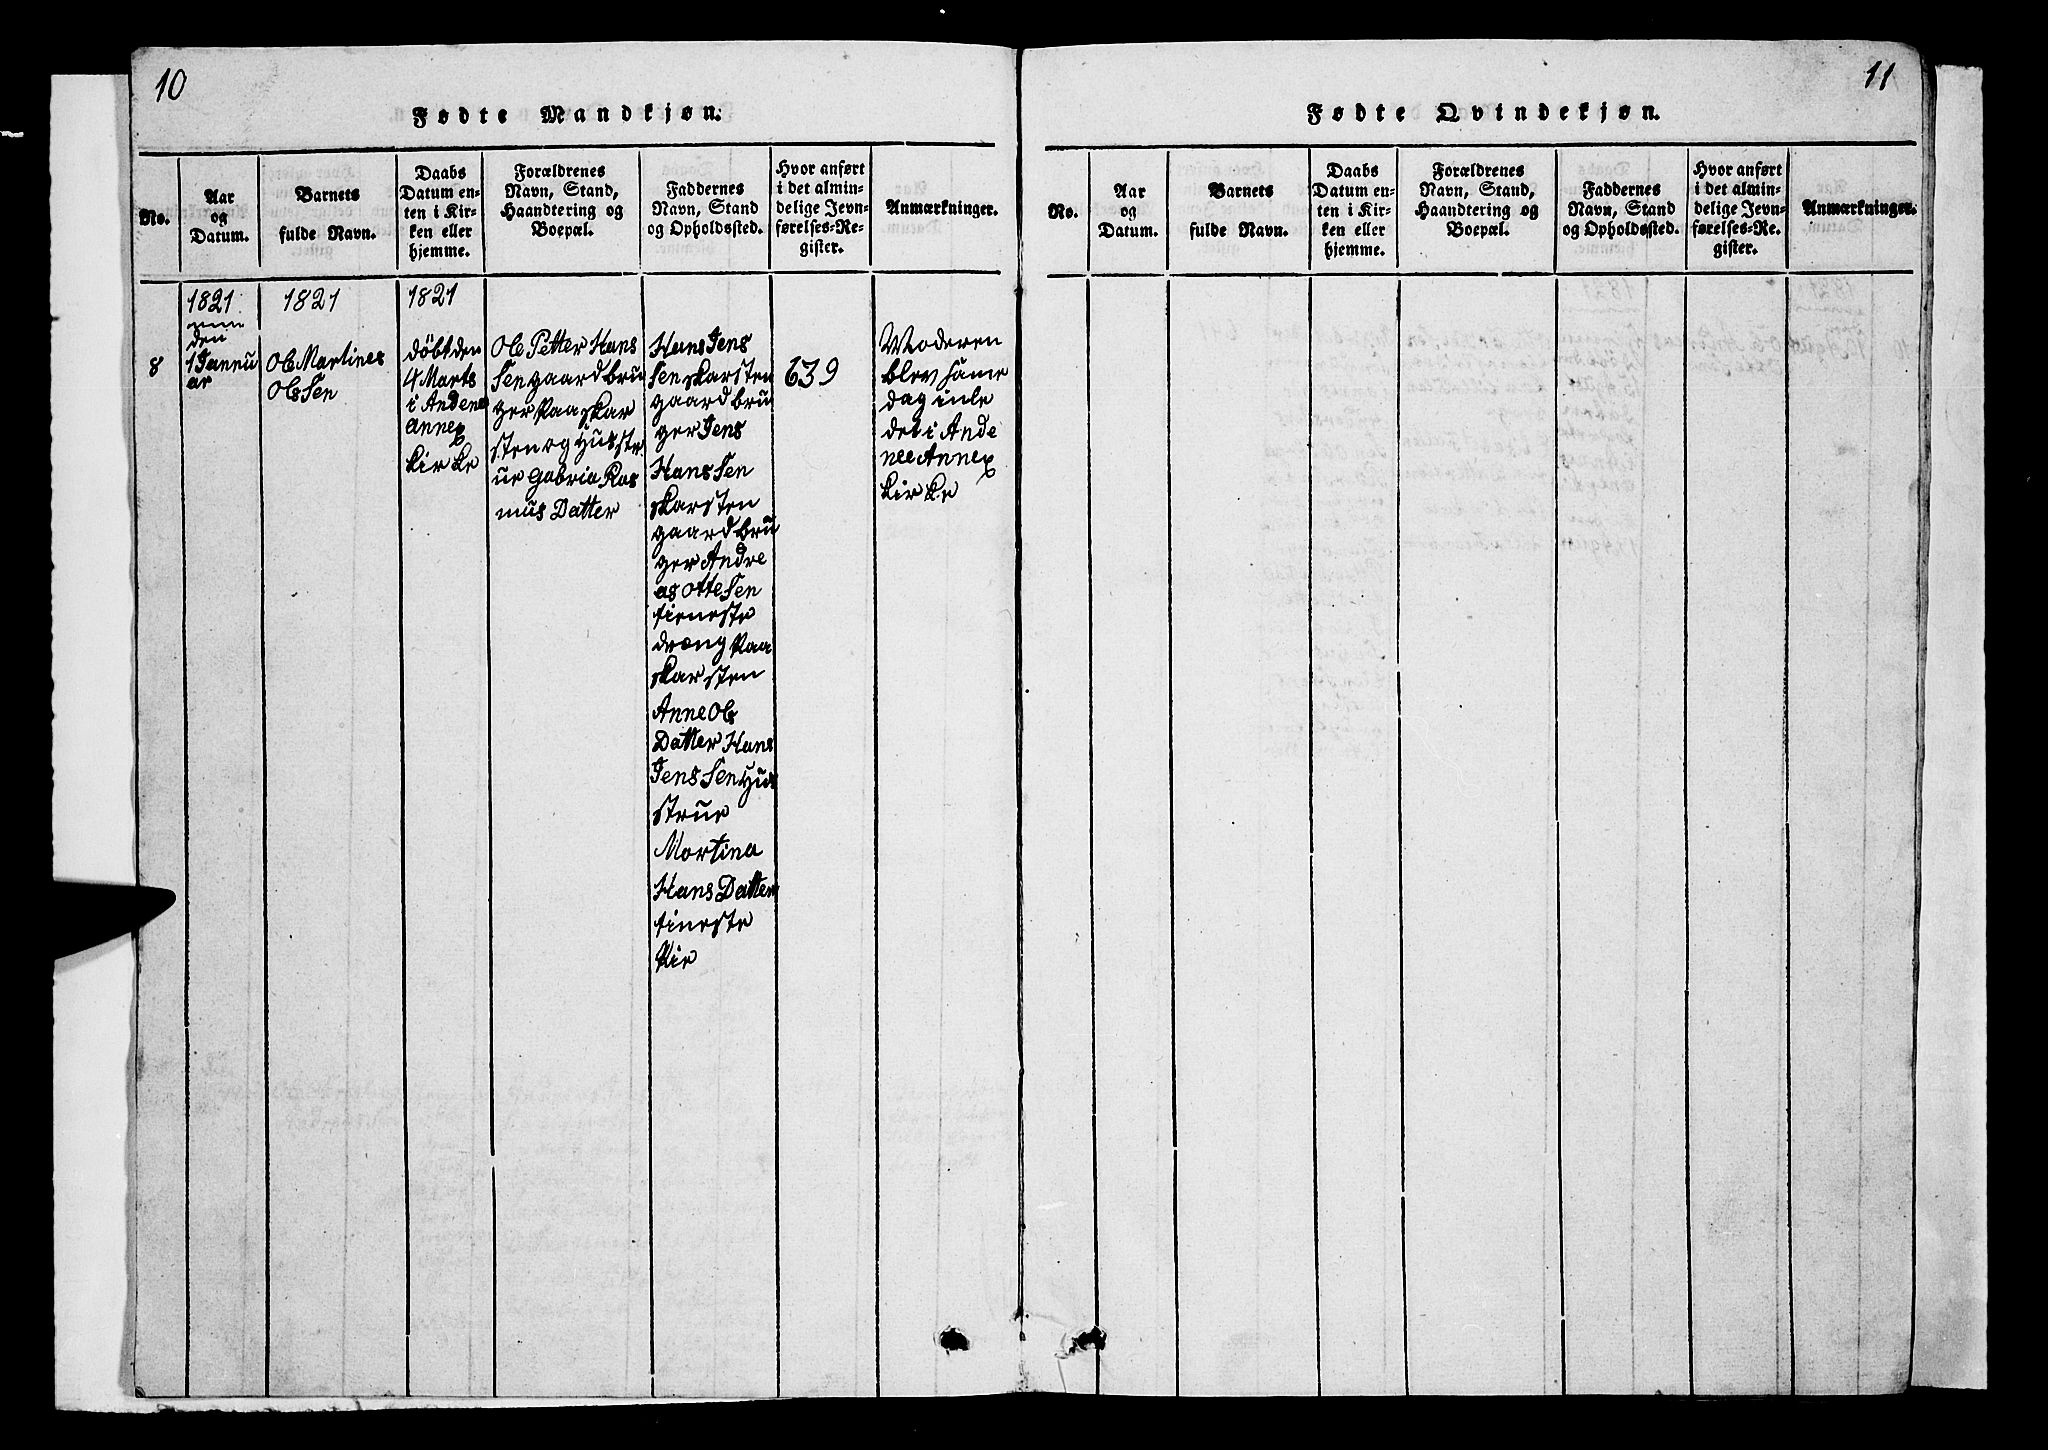 10
Fødte Mandkjøn.
No.
Aar
og
Datum.
Barnets
fulde Navn.
Daabs
Datum en-
ten i Kir-
ken eller
hjemme.
Forældrenes
Navn, Stand,
Haandtering og
Boepæl.
Faddernes
Navn, Stand
og Opholdssted.
Hvor anført
i det almin-
delige Jevn-
førelses-Re-
gister.
Anmærkninger.
8
1821
den
1 Jannu
ar
1821
Ole Martines
OleSen
1821
döbt den
4 Marts
i Andene
annex
kirke
Ole Petter Hans
Sen gaardbru
ger Paa Skar
sten og Hüsst
rue Gabria Ras
mus Datter
Hans Jens
Sen Skarsten
gaardbrü
ger Jens
Hans Sen
Skarsten
gaardbrü
ger Andre
as OtteSen
tieneste
dræng Paa
Skarsten
Anne Ole
Datter Hans
Jens Sen Hüs
strue
Martina
Hans Datter
tineste
Pie
639
Moderen
blev same
dag inle
det i Ande
nee Annex
kirke
11
Fødte Qvindekjøn.
No.
Aar
og
Datum.
Barnets
fulde Navn.
Daabs
Datum en-
ten i Kir-
ken eller
hjemme.
Forældrenes
Navn, Stand,
Haandtering og
Boepæl.
Faddernes
Navn, Stand
og Opholdssted.
Hvor anført
i det almin-
delige Jevn-
førelses-Re-
gister.
Anmærkninger.